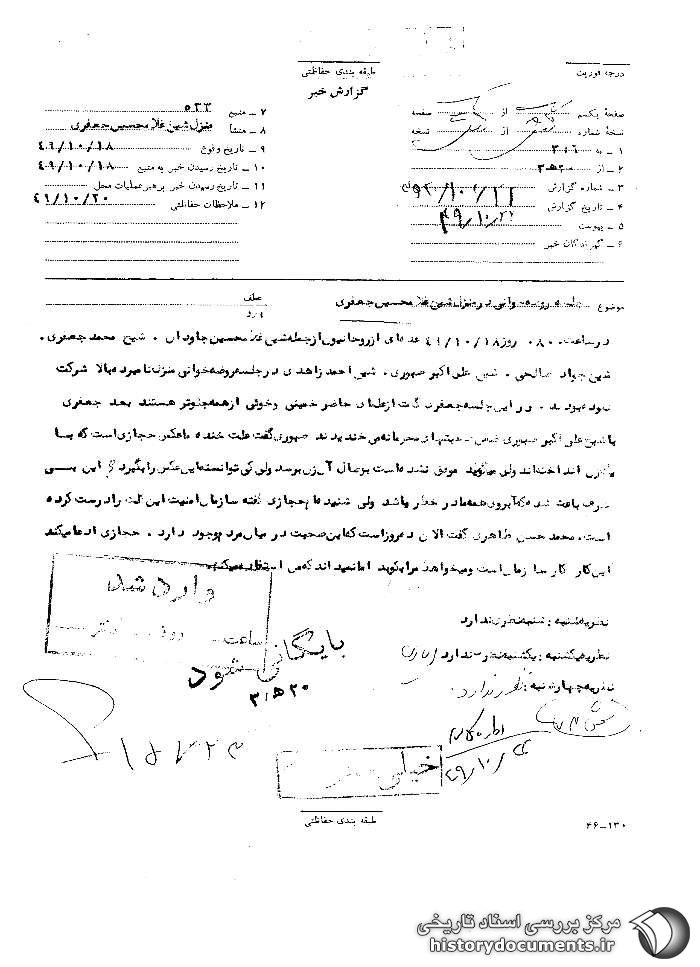 درجه فوریت
طبقه بندی حفاظتی
گزارش خبر
صفحهٔ یکم از صفحه
نسخهٔ شماره از نسخه
۱ ـ به ۳۰۶
۲ ـ از ۲۰ ه ۳
۳ ـ شماره گزارش
۴ ـ تاریخ گزارش ۴۹/۱۰/۲۲
۵ ـ پیوست
۶ ـ گیرندگان خبر
۷ ـ منبع ۵۳۳
۸ ـ منشأ منزل شیخ غلامحسین جعفری
۹ ـ تاریخ وقوع ۴۹/۱۰/۱۸
۱۰ ـ تاریخ رسیدن خبر به منبع ۴۹/۱۰/۱۸
۱۱ ـ تاریخ رسیدن خبر برهبر عملیات محل
۱۲ ـ ملاحظات حفاظتی ۴۹/۱۰/۲۰
موضوع جلسه روضه خوانی در منزل شیخ غلامحسین جعفری
عطف
در ساعت روز ۴۹/۱۰/۱۸ عده ای از روحانیون از جمله شیخ غلامحسین جاودان ـ شیخ محمد جعفری ـ
شیخ جواد صالحی ـ شیخ علی اکبر صبوری ـ شیخ احمد زاهدی در جلسه روضه خوانی منزل نامبرده بالا شرکت
نموده بودند ـ در این جلسه جعفری گفت از علمای حاضر خمینی و خوئی از همه جلوتر هستند بعد جعفری
با شیخ علی اکبر صبوری صحبت میخندیدند صبوری گفت علت خنده ما عکس حجازی است که با
انداخته اند ولی میگویند موفق نشده است بوصال آن زن برسد ولی کی توانسته این عکس را بگیرد این بی
شرف باعث شده که آبروی همه ما در خطر باشد ولی شنیده ام حجازی گفته سازمان امنیت این را درست کرده
است ـ محمد حسن طاهری گفت الان دو روز است که این صحبت در میان مردم وجود دارد ـ حجازی ادعا میکند
این کار کار سازمان است و میخواهد مرا بکوبد اما نمیداند که من استفاده میکنم
نظریه شنبه : شنبه نظری ندارد
نظریه یکشنبه : یکشنبه نظری ندارد
نظریه چهارشنبه : نظری ندارد
وارد شد
ساعت روز دفتر
بایگانی شود
۲۰ ه ۳
۴۹/۱۰/
خیلی
طبقه بندی حفاظتی
۴۶ـ۱۳۰
مرکز بررسی اسناد تاریخی
historydocuments.ir